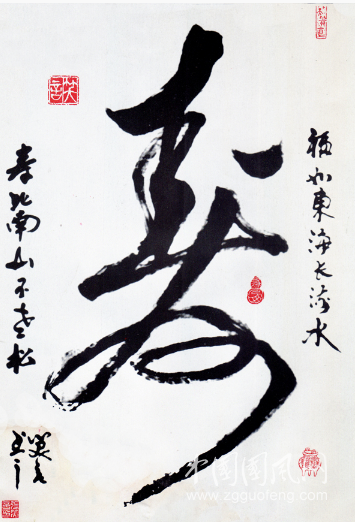 福如東海长流水
寿
寿比南山不老松
中国国风网
www.zgguofeng.com